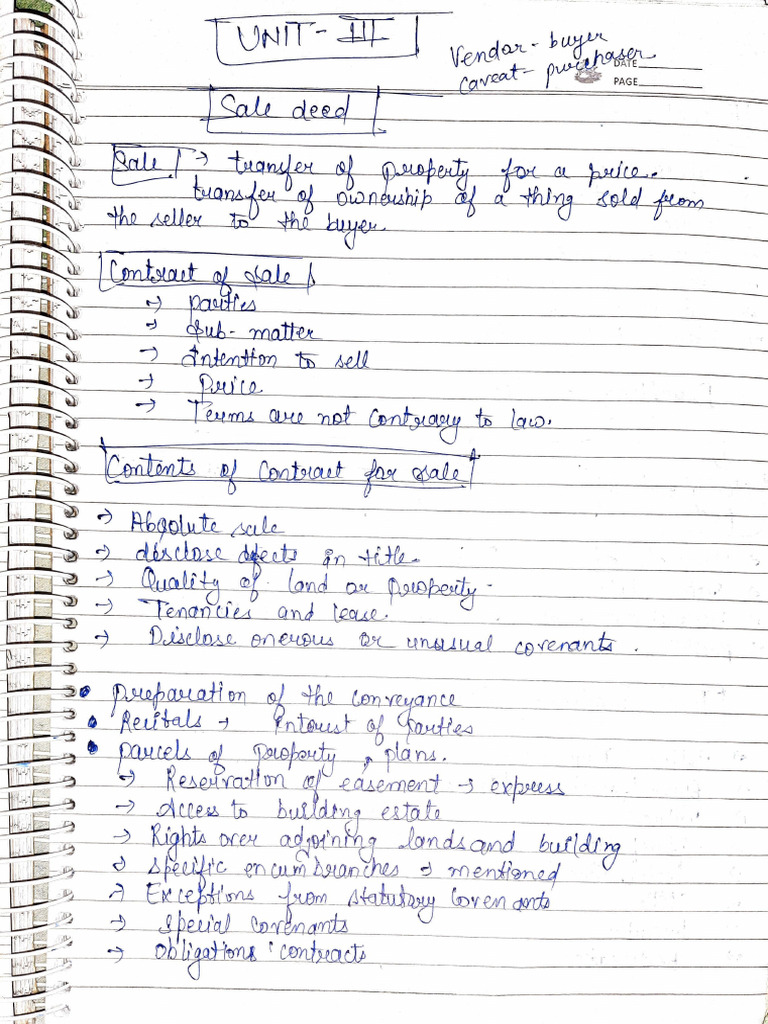 UNIT - III
Vendor - buyer
caveat - purchaser
DATE
PAGE
Sale deed
Sale → transfer of property for a price.
transfer of ownership of a thing sold from
the seller to the buyer.
Contract of sale
→ parties
→ Sub-matter
→ Intention to sell
→ Price
→ Terms are not contrary to law.
Contents of contract for sale
→ Absolute sale
→ disclose defects in title.
→ Quality of land or property.
→ Tenancies and lease.
→ Disclose onerous or unusual covenants.
• preparation of the conveyance
• Recitals → Interest of parties
• parcels of property, plans.
→ Reservation of easement → express
→ Access to building estate
→ Rights over adjoining lands and building
→ specific encumbranches → mentioned
→ Exceptions from statutary Covenants
→ special covenants
→ Obligations : contracts